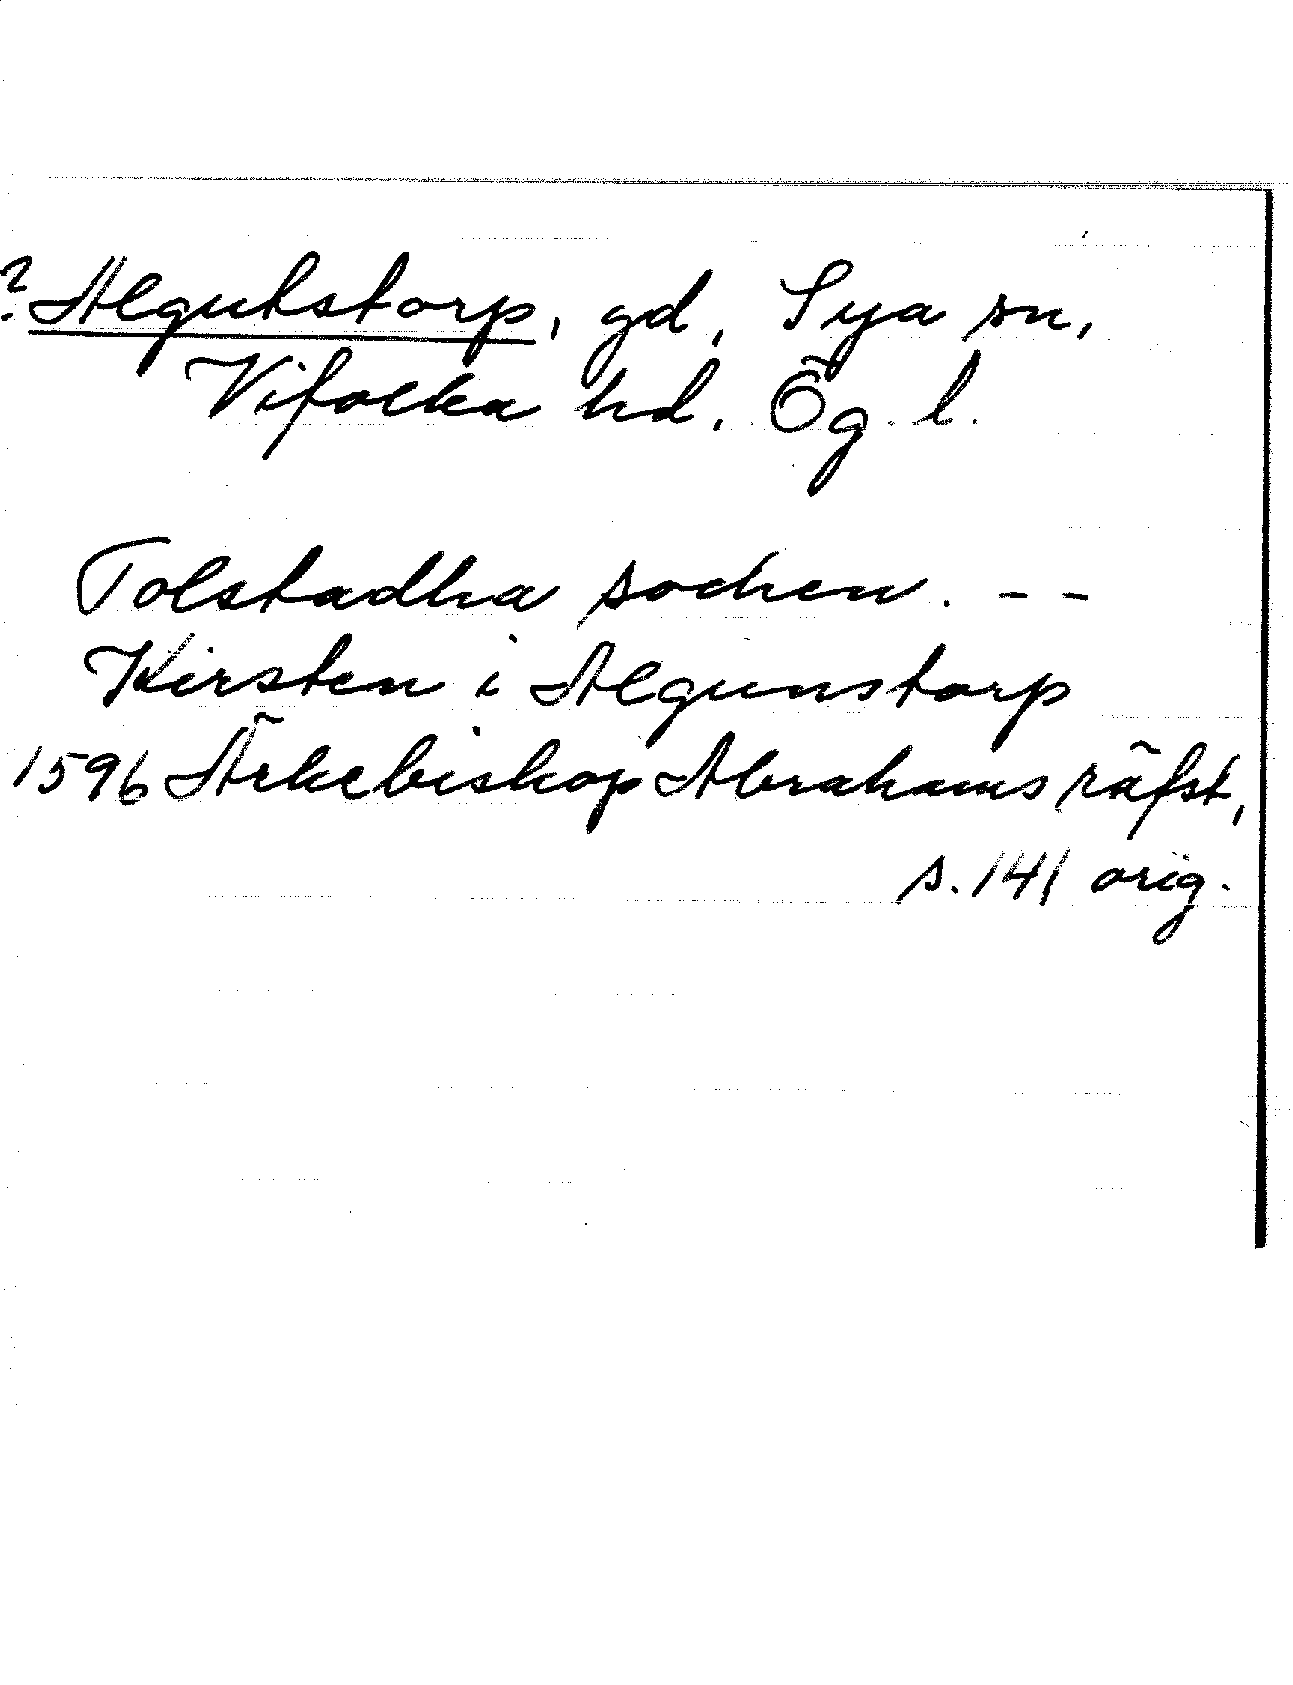 ? Algutstorp, gd, Sya sn,
Vifolka hd. Ög. l.
Tolstadha sochen. - -
Kirsten i Algunstorp
1596 Ärkebiskop Abrahams räfst,
s. 141 orig.